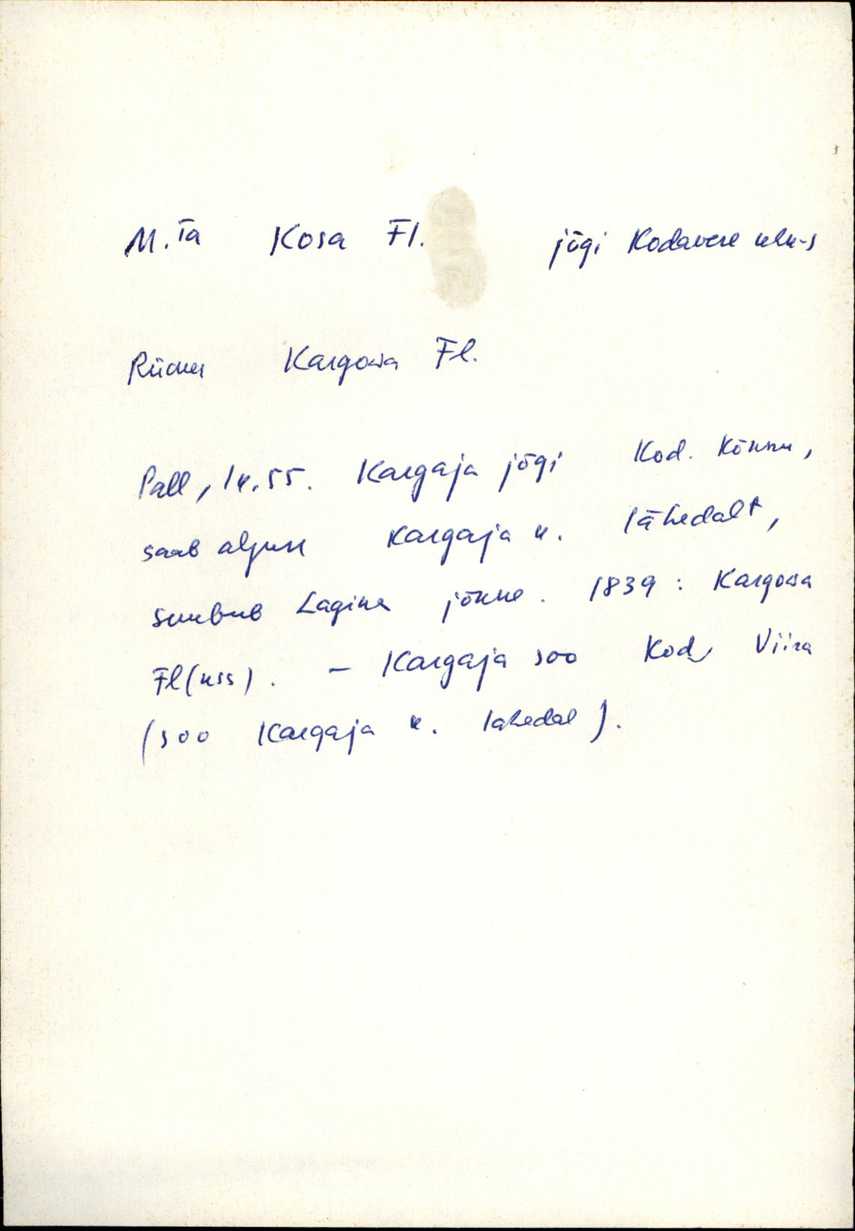 M. Ta Kosa Fl. jõgi Kodavere khk-s
Rücker Kargowa Fl.
Pall, lk. 55. Kargaja jõgi Kod. Kõnnu,
saab alguse Kargaja k. lähedalt,
suubub Lagina jõkke. 1839: Kargowa
Fl(uss). – Kargaja soo Kod. Viira
(soo Kargaja k. lähedal).